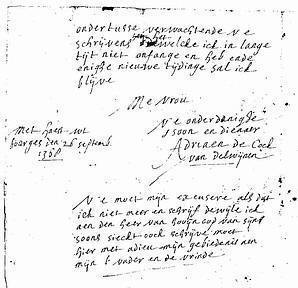 ondertusse verwachtende v e
schrijvens dewelcke ick in lange
tijt niet onfange en heb ende
enighe nieuwe tijdinge sal ick
blijve
Me vrou
v e onderdanighe
soon en dienaer
Adriaen de Cock
van delwijnen
Met haest wt
bourges den 26 septemb
v e moet mijn excusere als dat
ick niet meer en schrijf dewijle ick
aen den heer van
soons sieckt oock schrijve moet
hier met adieu mijn gebiedenis aen
mijn vader en de vrinde